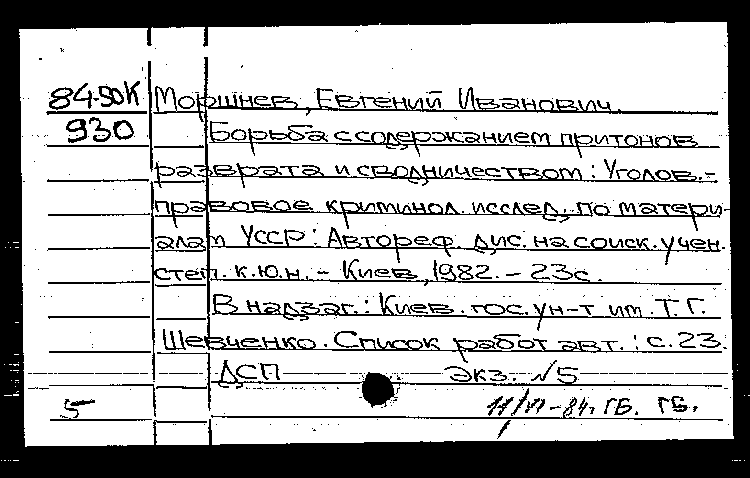 84-90К Моршнев, Евгений Иванович.
930 Борьба с содержанием притонов
разврата и сводничеством: Уголов.-
правовое криминол. исслед. по матери-
алам УССР: Автореф. дис. на соиск. учен.
степ. к.ю.н. - Киев, 1982. - 23с.
В надзаг.: Киев. гос. ун-т им. Т.Г.
Шевченко. Список работ авт.: с. 23.
ДСП Экз. №5
5 11/VI-84. ГБ. ГБ.